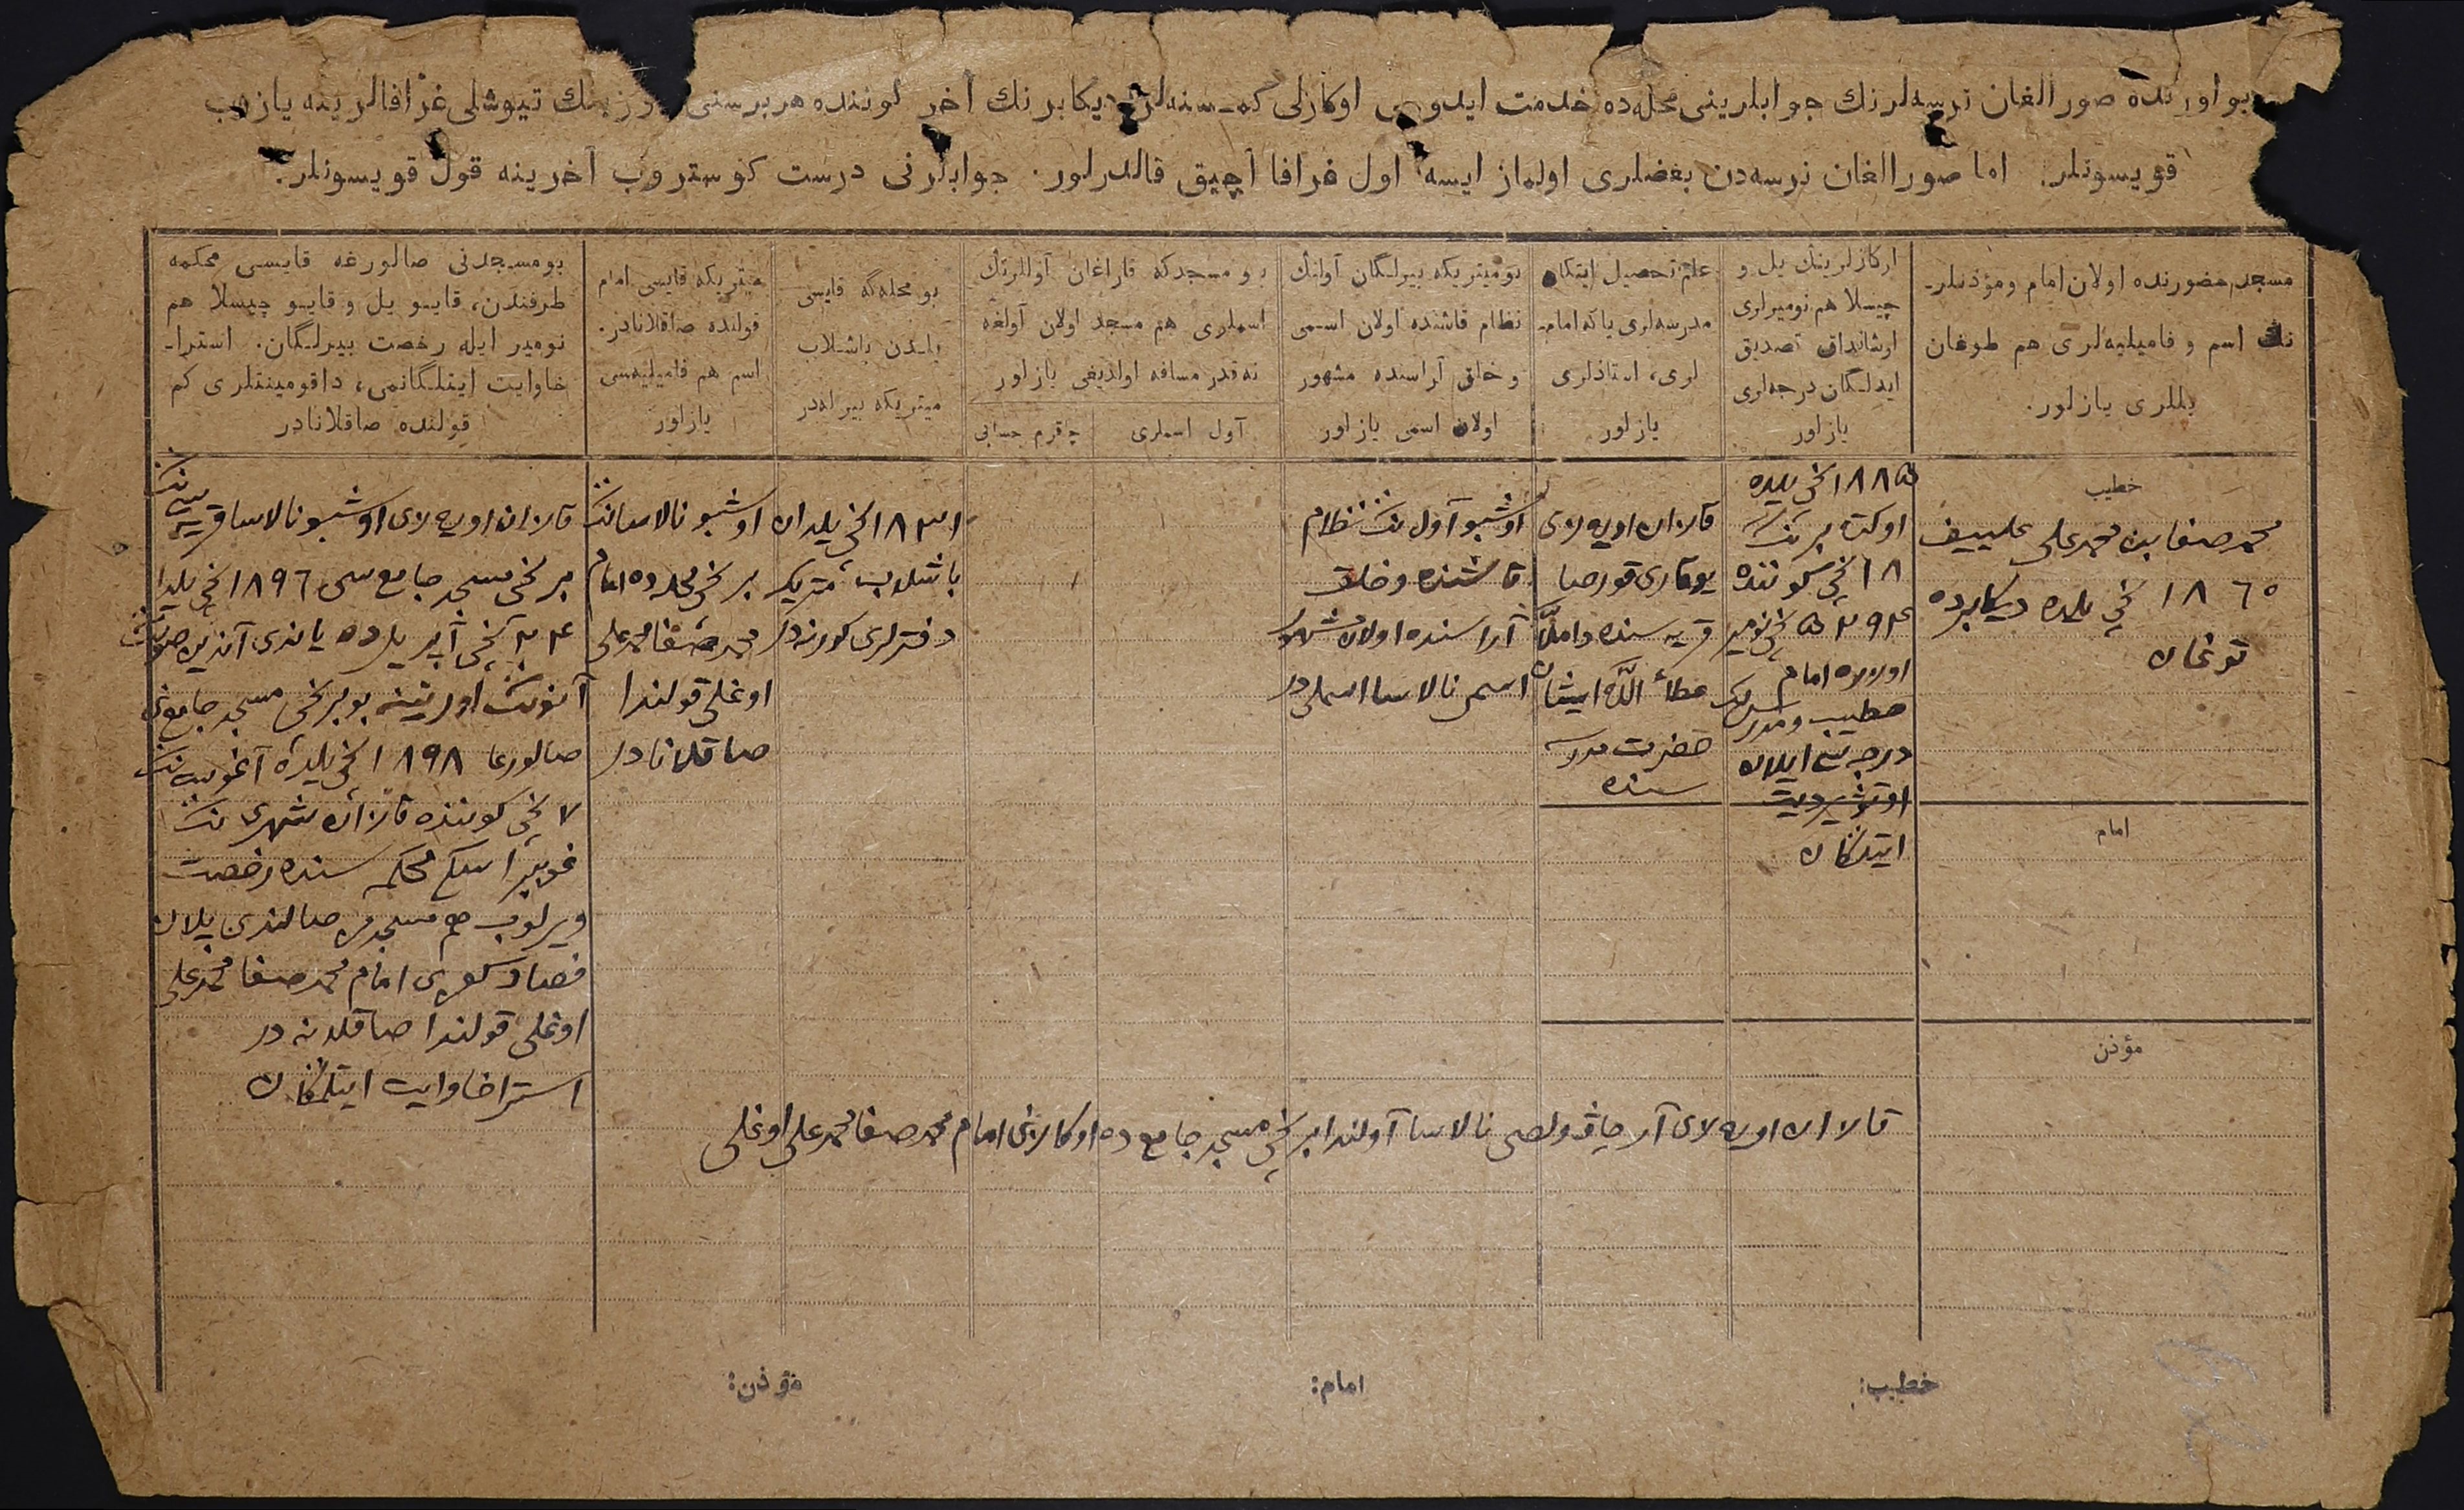 بو اورنده صورالغان نرسه‌لرنك جوابلرینی محله‌ده خدمت ایدوچی اوكازلی كمـسنه‌لر دیكابرنك آخر كوننده هر برسنی نك تیوشلی غرافالرینه یازوب
قویسونلر. اما صورالغان نرسه‌دن بعضلری اولماز ایسه اول غرافا آچیق قالدرلور. جوابلرنی درست كوستروب آخرینه قول قویسونلر.
مسجد حضورنده اولان امام ومؤذنلرـ
نك اسم و فامیلیه‌لری هم طوغان
یللری یازلور.
اركازلرینك یل و
چیسلا هم نومیرلری
اوشانداق تصدیق
ایدلـگان درجه‌لری
یازلور
علم تحصیل ایتكان
مدرسه‌لری یاكه امامـ
لری، استاذلری
یازلور
بومیتریكه بیرلـگان آولنك
نظام قاشنده اولان اسـمی
و خلق آراسنده مشهور
اولان اسمی یازلور
بو مسجدكه قاراغان آوللرنك
اسملری هم مسجد اولان آولغه
نه‌قدر مسافه اولدیغی یازلور
آول اسملری
چاقرم حسابی
بو محله‌گه قایسی
یلـدن باشـلاب
میتریكه بیرله‌در
میتریكه قایسی امام
قولنده صاقلانادر.
اسم هم فامیلیه‌سی
یازلور
بومسجدنی صالورغه قایسی محكمه
طرفندن، قایـو یل و قایـو چیسلا هم
نومیر ایله رخصت بیرلـگان. استراـ
خاوایت ایتلـگانمی، داقومینتلری كم
قولنده صاقلانادر
خطیب
محمدصفا بن محمدعلی علییف
١٨٦٥ نچی یلده دیكابرده
توغان
١٨٨٥ نچی یلده
اوكتەبرنك
١٨ نچی كوننده
نومیر
اولاراق امام
خطیب ومدرسلك
درجه‌سی ایلان
ایتلگان
قازان اویه‌زی
یوقاری قورصا
قریه سنده داملا
عطاء الله ایشان
حضرت مدرسه
سنده
اوشبو آول نك نظام
قاشنده وخلق
آراسنده اولان مشهور
اسمی نالاسا اسملی در
١٨٣١ نچی یلدان
باشلاب متریكه
دفترلری كورنه‌در
اوشبو نالاسانك
برنچی محله ده امام
محمدصفا محمدعلی
اوغلی قولندا
صاقلانادر
قازان اویه‌زی اوشبو نالاسا قریه سی نك
برنچی مسجد جامع سی ١٨٩٦ نچی یلدا
٢٤ نچی آپریل ده یاندی آندین صونك
آنونك اورنینه بو برنچی مسجد جامع نی
صالورغا ١٨٩٨ نچی یلده آغوست نك
٧ نچی كوننده قازان شهری نك
غوبیرنسكی محكمه سنده رخصت
ویرلوب هم مسجد صالندی پلان
امام محمدصفا محمدعلی
اوغلی قولندا صاقلانه در
استراخاوایت ایتلمگان
امام
مؤذن
قازان اویه‌زی آرچا ولصی نالاسا آولندا برنچی مسجد جامع ده اوكازلی امام محمدصفا محمدعلی اوغلی
خطیب:
امام:
مؤذن: